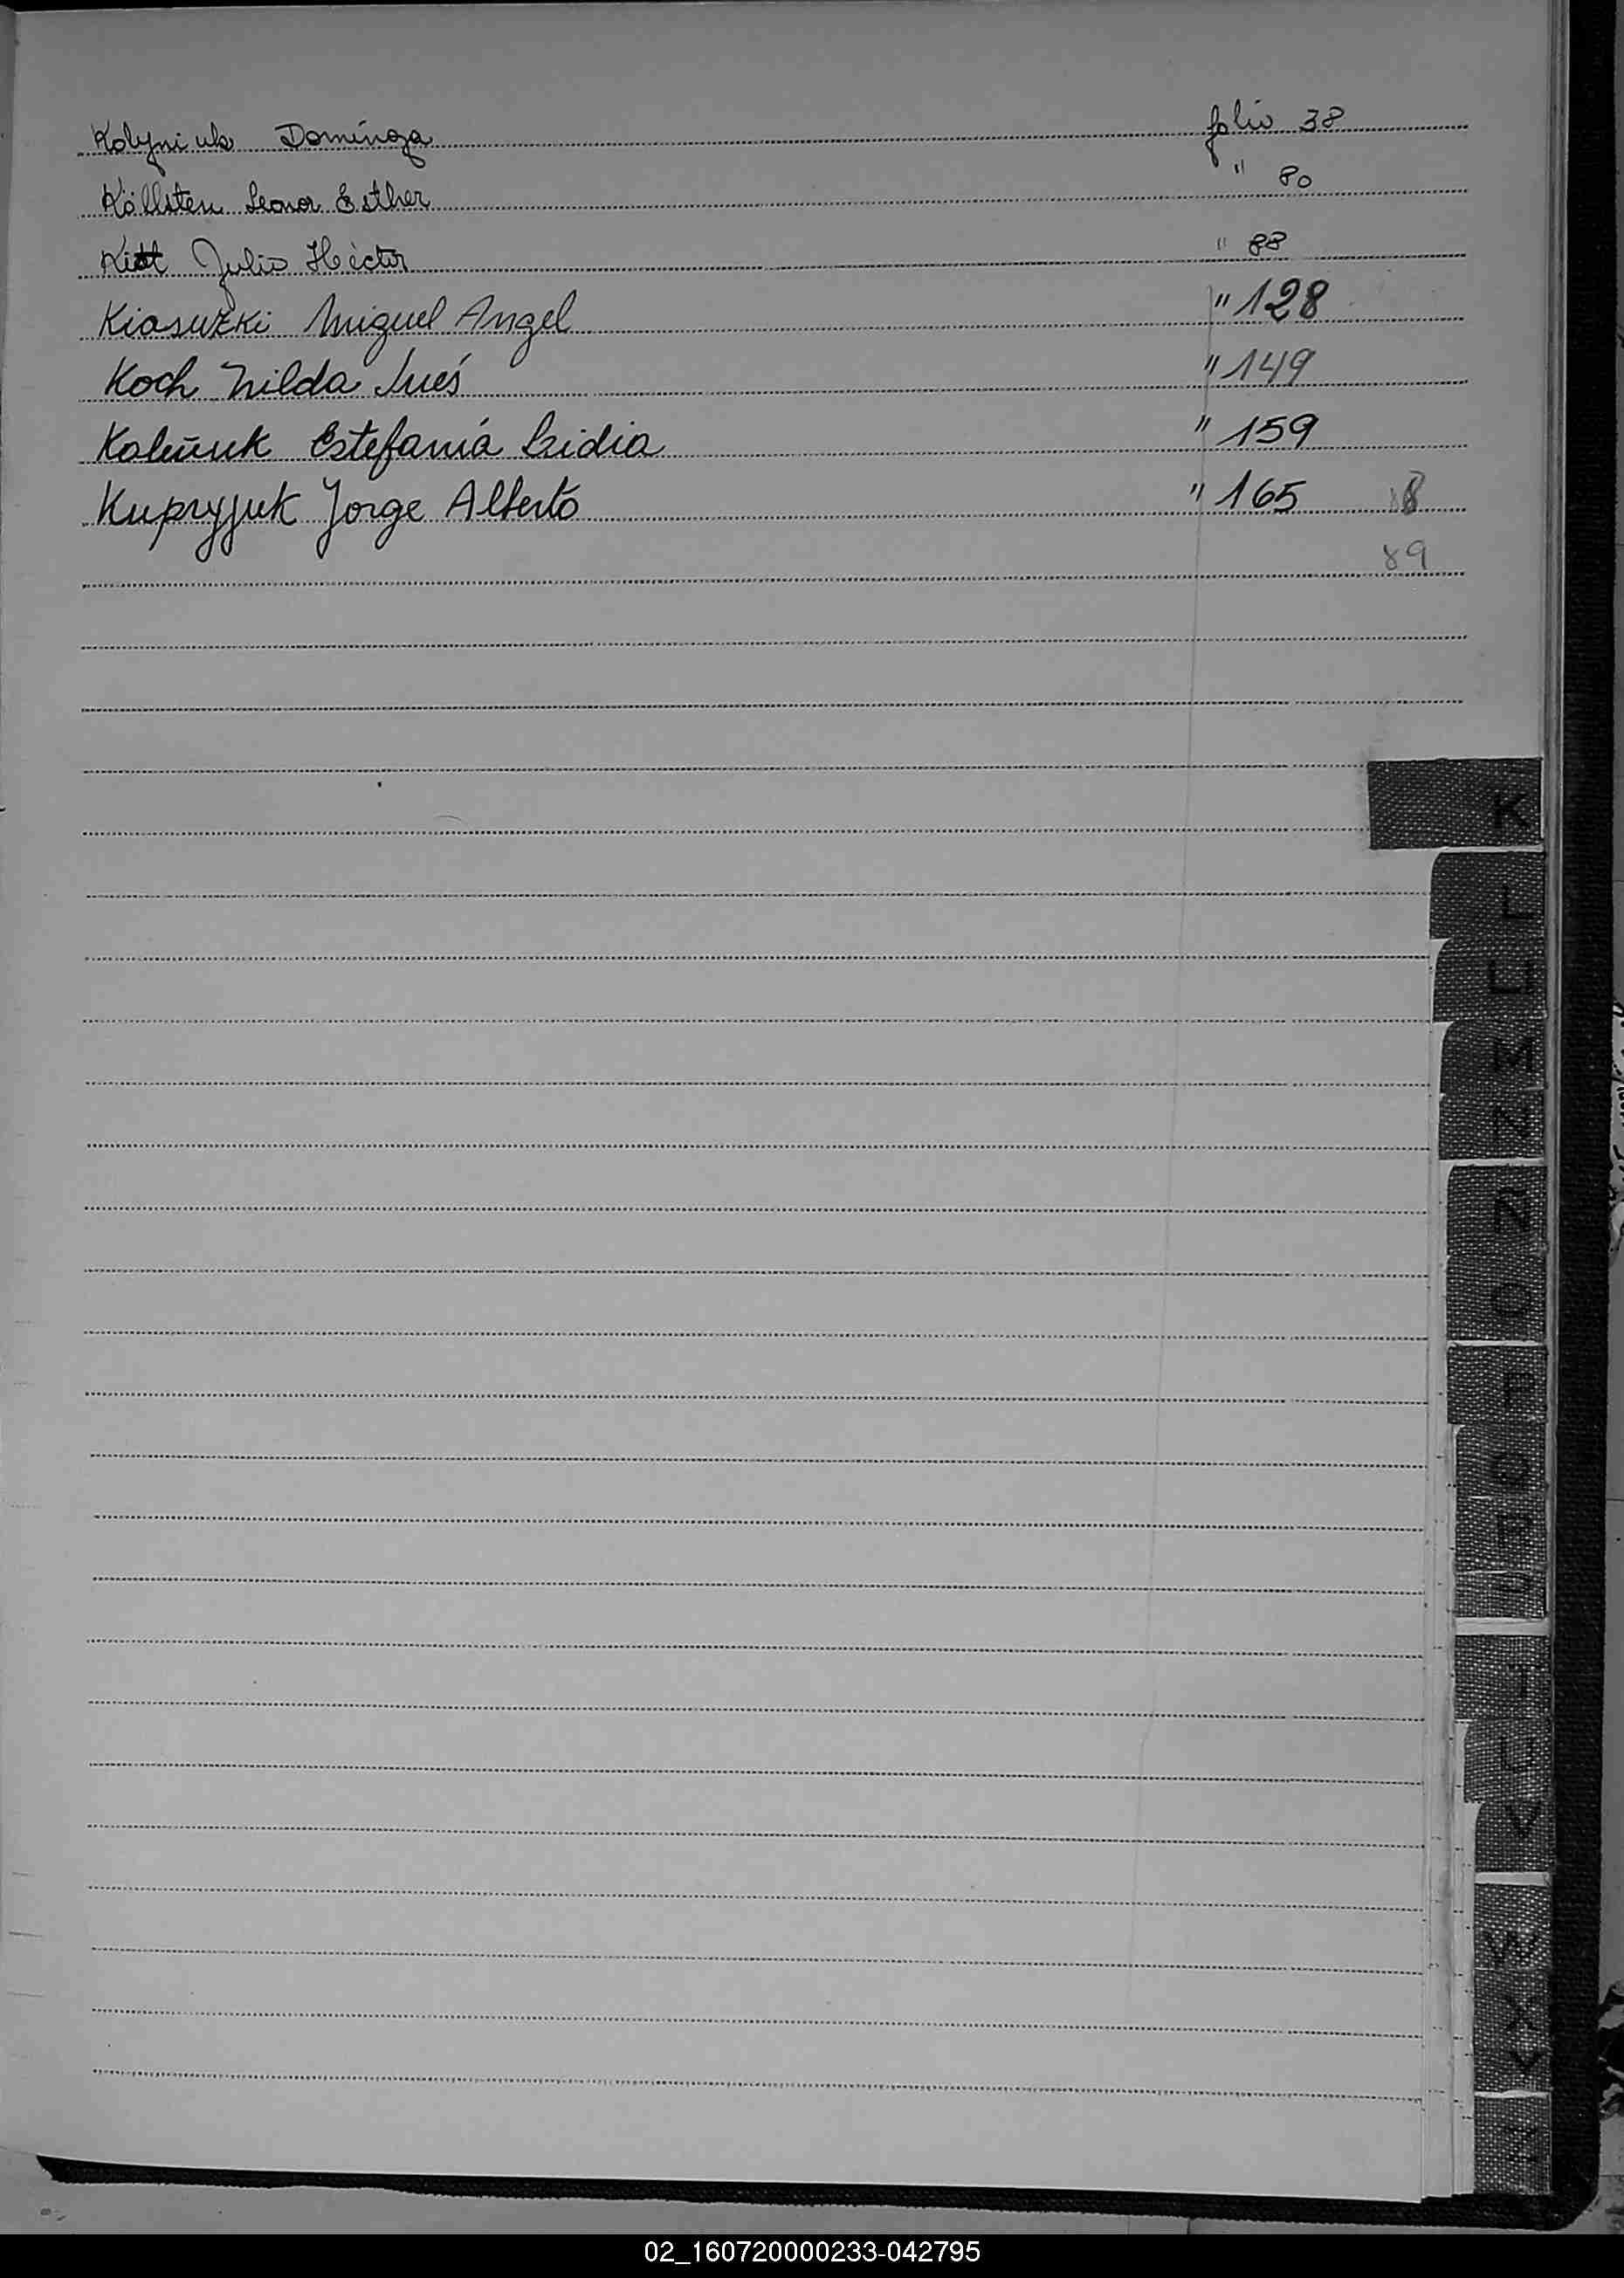 Kolyniuk Dominga folio 38
Köllsten Leonor Esther " 80
Kitt Julio Héctor " 88
Kiasuzki Miguel Angel " 128
Koch Nilda Inés " 149
Estefanía Lidia " 159
Kupryjuk Jorge Alberto " 165 8
89
K
L
LL
M
N
Ñ
O
P
Q
R
S
T
U
V
W
X
Y
Z
02_160720000233-042795